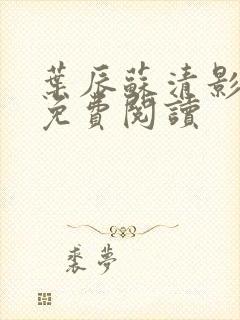 葉辰蘇清影
免費閱讀
裘夢